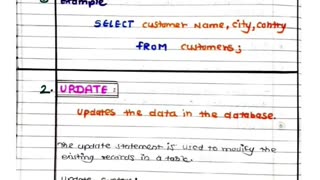 Example
SELECT customer Name, city, contry
FROM customers;
2. UPDATE :
updates the data in the database.
The update statement is used to modify the
existing records in a table.